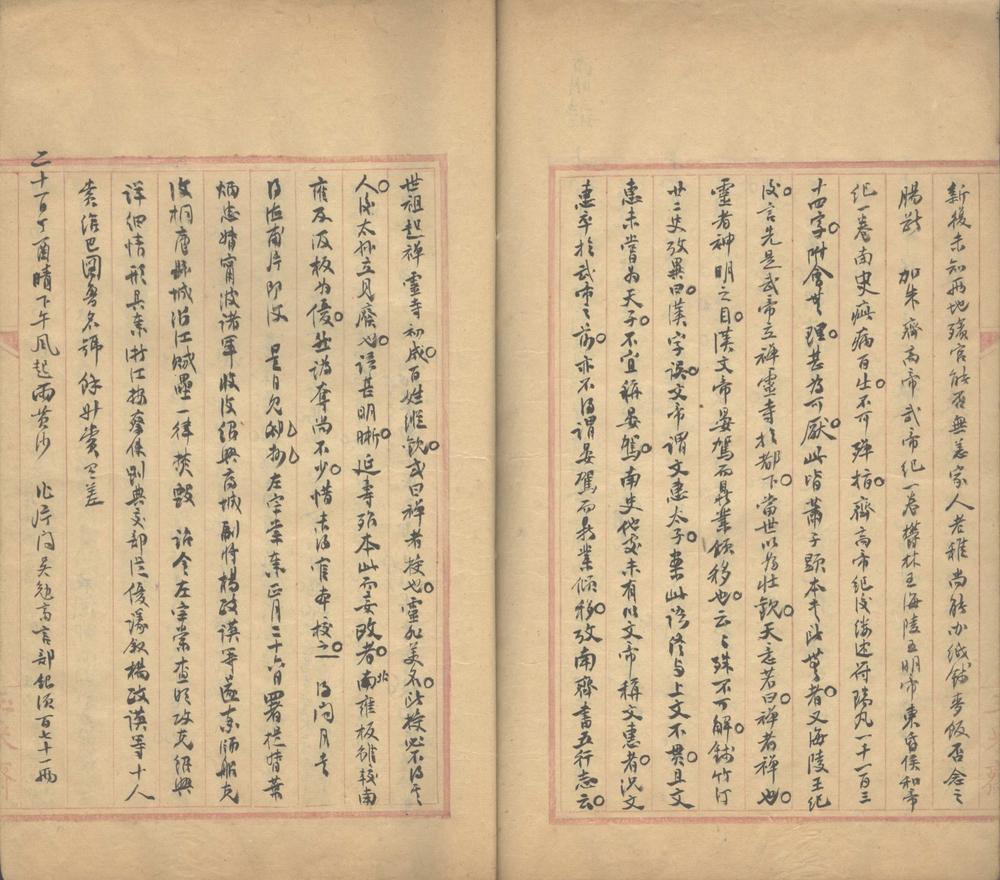 新復未知兩地殯宮能否無恙家人老稚尚能辦紙錢麥飯否念之
腸斷 加朱齊高帝武帝紀一卷鬱林王海陵王明帝東昏侯和帝
紀一卷南史疵病百出不可殫摘齊高帝紀後縷述符瑞凡一千一百三
十四字附會無理甚為可厭此皆蕭子顯本書所無者又海陵王紀
後言先是武帝立禪靈寺於都下當世以為壯觀天意若曰禪者禪也
靈者神明之目漢文帝晏駕而鼎業傾移也云云殊不可解錢竹汀
廿二史攷異曰漢字誤文帝謂文惠太子案此語終與上文不貫且文
惠未嘗為天子不宜稱晏駕南史他處未有以文帝稱文惠者況文
惠卒於武帝之前亦不得謂晏駕而鼎業傾移攷南齊書五行志云
世祖起禪靈寺初成百姓縱觀或曰禪者授也靈非美名所授必不得其
人後太孫立見廢也語甚明晰延壽殆本此而妄改者南北雍板雖較南
雍及汲板為優然譌奪尚不少惜未得官本校之 得 月
得 甫片即復 是日 左宗棠奏正月二十六日署提督葉
炳忠 甯波諸軍收復紹興府城副將楊政謨等 師船克
復桐廬縣城沿江賊壘一律焚毀 詔令左宗棠查明攻克紹興
詳細情形具奏浙江按察使劉典交部從優議敘楊政謨等十人
賞給巴圖魯名號餘升賞有差
二十一日丁酉晴下午風起雨黃沙 作片 吳 言部 須百七十一兩